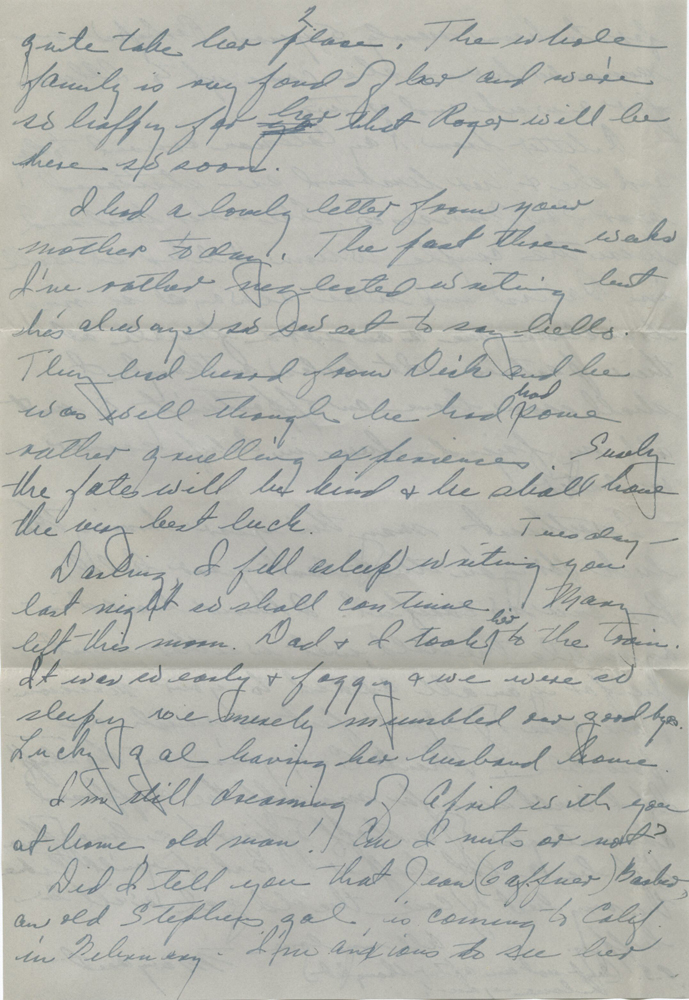 2
quite take her place. The whole
family is very fond of her and we're
so happy for her that Roger will be
here so soon.
I had a lovely letter from your
mother today. The past three weeks
I've rather neglected writing but
she's always so sweet to say hello.
They had heard from Dick and he
was well though he had had some
rather gruelling experiences Surely
the fates will be kind & he shall have
the very best luck.
Tuesday —
Darling, I fell asleep writing you
last night so shall continue. Mary
left this morn. Dad & I took her to the train.
It was so early & foggy & we were so
sleepy we merely mumbled our goodbyes.
Lucky gal having her husband home.
I'm still dreaming of April with you
at home, old man! Am I nuts or not?
Did I tell you that Jean (Gaffner)
an old Stephens gal is coming to Calif.
in February. I'm anxious to see her